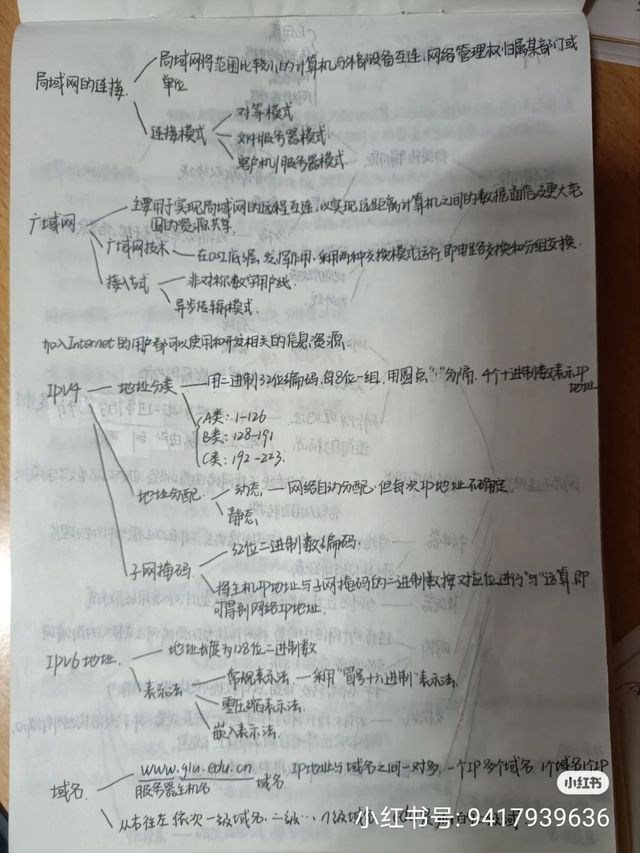 局域网的连接
局域网将范围比较小的计算机与外部设备互连,网络管理权归属某部门或
单位
连接模式
对等模式
文件服务器模式
客户机/服务器模式
广域网
主要用于实现局域网的远程互连,以实现远距离计算机之间的数据通信及更大范
围的资源共享
广域网技术
在OSI底层发挥作用,采用两种交换模式运行即电路交换和分组交换.
接入方式
非对称数字用户线
异步传输模式.
加入Internet的用户都可以使用和开发相关的信息资源
IPV4
地址分类
用二进制32位编码,每8位一组,用圆点"."分隔,4个十进制数表示IP
地址
A类:1-126
B类:128-191
C类:192-223.
地址分配
动态
网络自动分配,但每次IP地址不确定.
静态
子网掩码
32位二进制数编码.
将主机IP地址与子网掩码的二进制数按对应位进行"与"运算,即
可得到网络IP地址.
IPV6地址
地址长度为128位二进制数
表示法
常规表示法
采用"冒号十六进制"表示法.
零压缩表示法.
嵌入表示法.
域名
www.glu.edu.cn
服务器主机名
域名
IP地址与域名之间一对多,一个IP多个域名,1个域名1个IP
从右往左依次一级域名、二级…
小红书
小红书号:9417939636